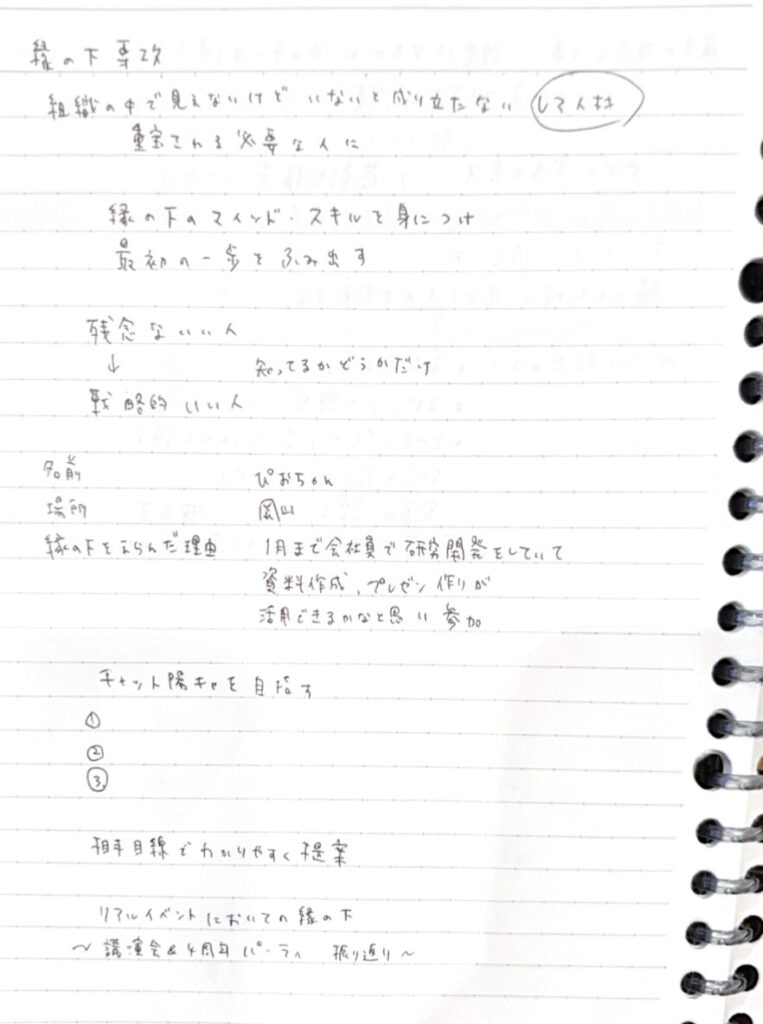 縁の下専攻
組織の中で見えないけど いないと成り立たない レア人材
重宝される必要な人に
縁の下のマインド・スキルを身につけ
最初の一歩をふみ出す
残念ないい人
↓ 知ってるかどうかだけ
戦略的いい人
名前 ぴおちゃん
場所 岡山
縁の下をえらんだ理由 1月まで会社員で研究開発をしていて
資料作成、プレゼン作りが
活用できるかなと思い 参加
チャット陽キャを目指す
①
②
③
相手目線でわかりやすく提案
リアルイベントにおいての縁の下
～講演会&4周年パーティ 振り返り～